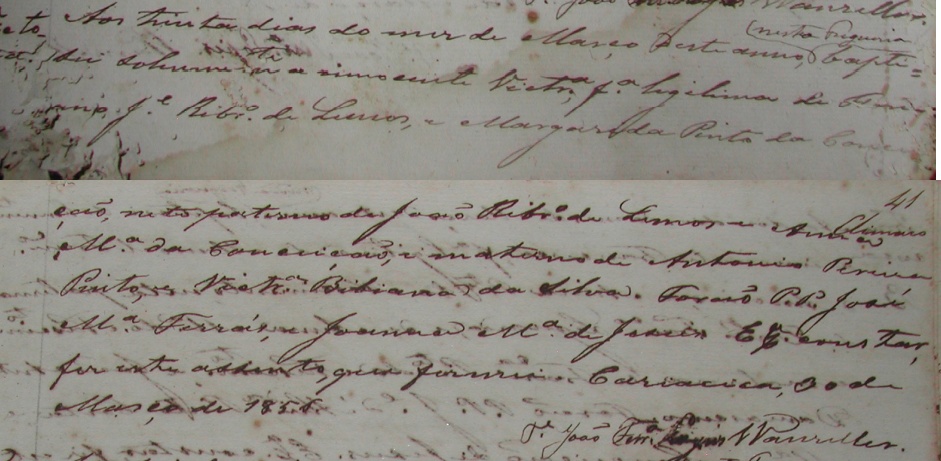 Pe. João Wanzeller.
nesta Freguesia
Aos trinta dias do mez de Março deste anno, bapti=
sei solemnem.te a innocente Victr.ª, f.ª legitima de
J.e Ribr.º de Lemos, e Margarida Pinto da Concei
41
ção, neto paterno de João Ribr.º de Lemos e Anna
M.ª da Conceicão, e materno de Antonio Pereira
Pinto, e Victr.ª Bibiana da Silva. Forão P.P. José
M.ª Ferráz, e Joanna M.ª de Jesus. E p.ª constar,
fiz este assento, que firmei. Cariacica, 30 de
Março de 1858.
Pe. João Ferr.ª Wanzeller.